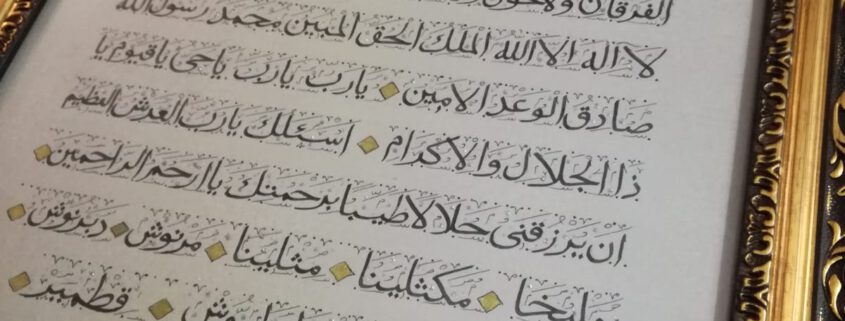 الفرقان ولاحول
لا اله الا الله الملك الحق المبين محمد رسول الله
صادق الوعد الامين يارب يارب ياحى ياقيوم يا
ذا الجلال والاكرام اسئلك يارب العرش العظيم
ان يرزقنى حلالا طيبا برحمتك يا ارحم الراحمين
يمليخا مكثلينا مثلينا مرنوش دبرنوش
قطمير